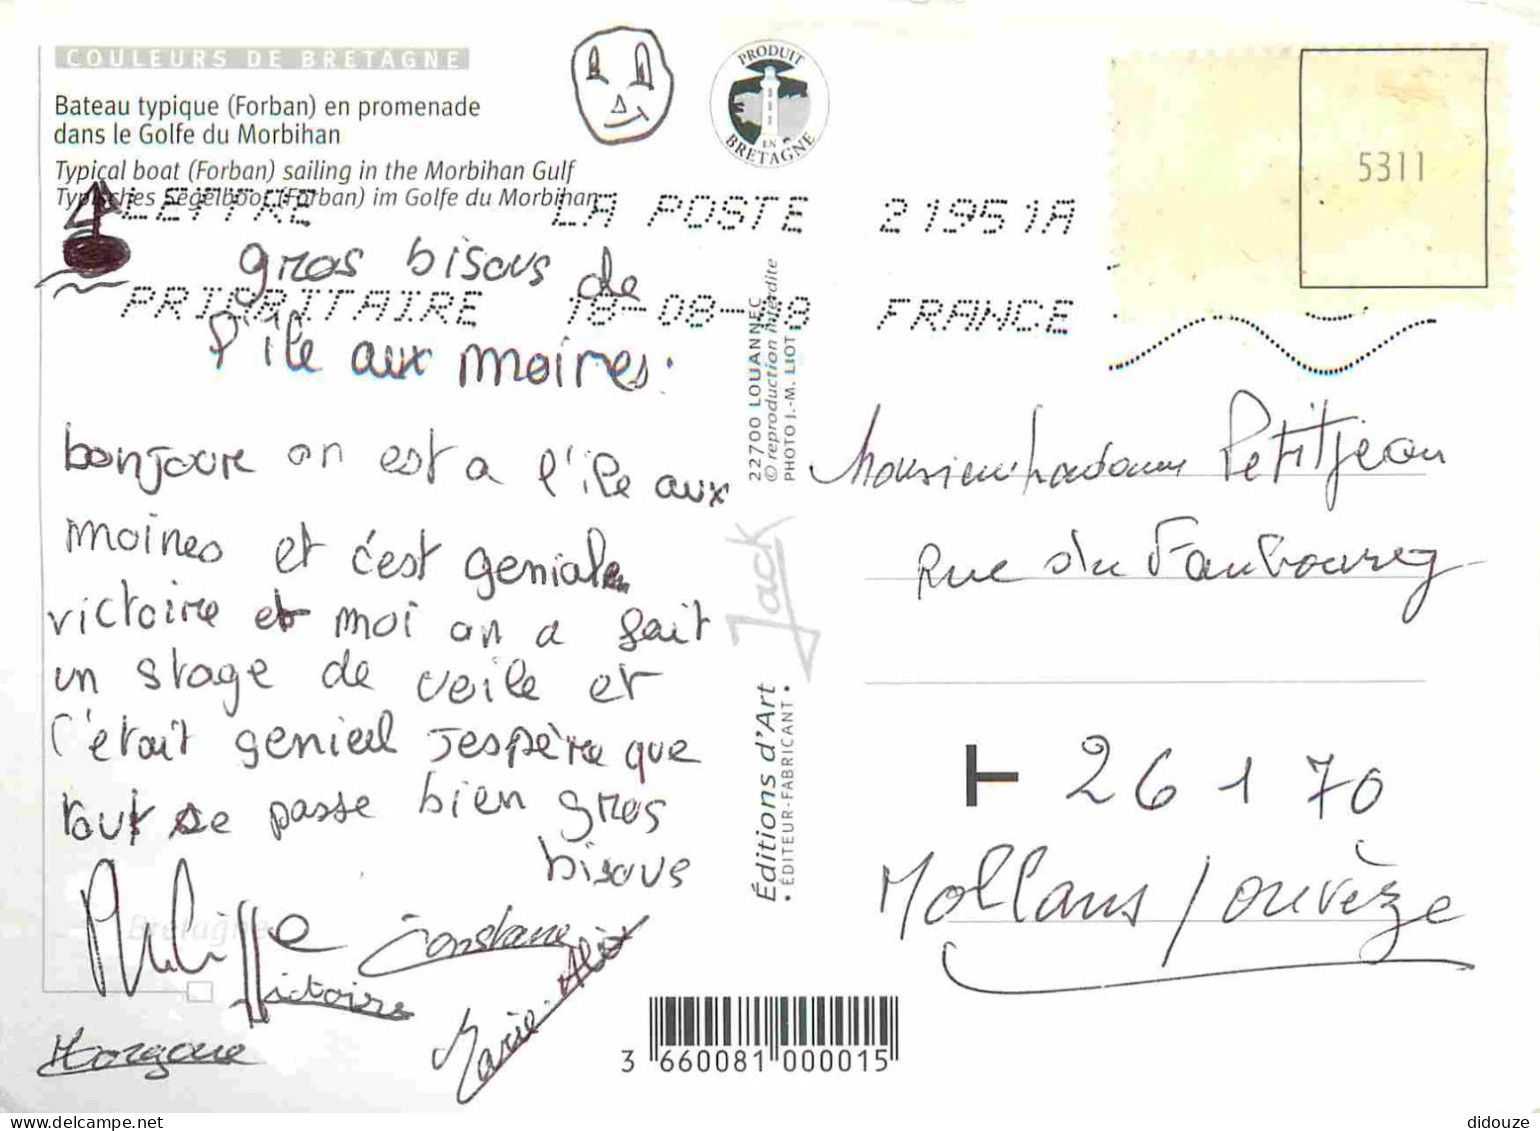 COULEURS DE BRETAGNE
Bateau typique (Forban) en promenade
dans le Golfe du Morbihan
Typical boat (Forban) sailing in the Morbihan Gulf
Typisches Segelboot (Forban) im Golfe du Morbihan
PRODUIT
EN
BRETAGNE
5311
LETTRE LA POSTE 21951A
PRIORITAIRE 18-08- FRANCE
gros bisous de
l'île aux moines.
bonjoure on est a l'île aux
moines et c'est genial
victoire et moi on a fait
un stage de voile et
c'était genial Jespère que
tout se passe bien gros
bisous
Philippe
Constance
Victoire
Marie-Alix
Morgane
Bretagne
22700 LOUANNEC
© reproduction interdite
PHOTO J.-M. LIOT
Jack
Éditions d'Art
• ÉDITEUR-FABRICANT •
Monsieur madame Petitjean
Rue du Faubourg
26170
Mollans / ouvèze
3 660081 000015
didouze